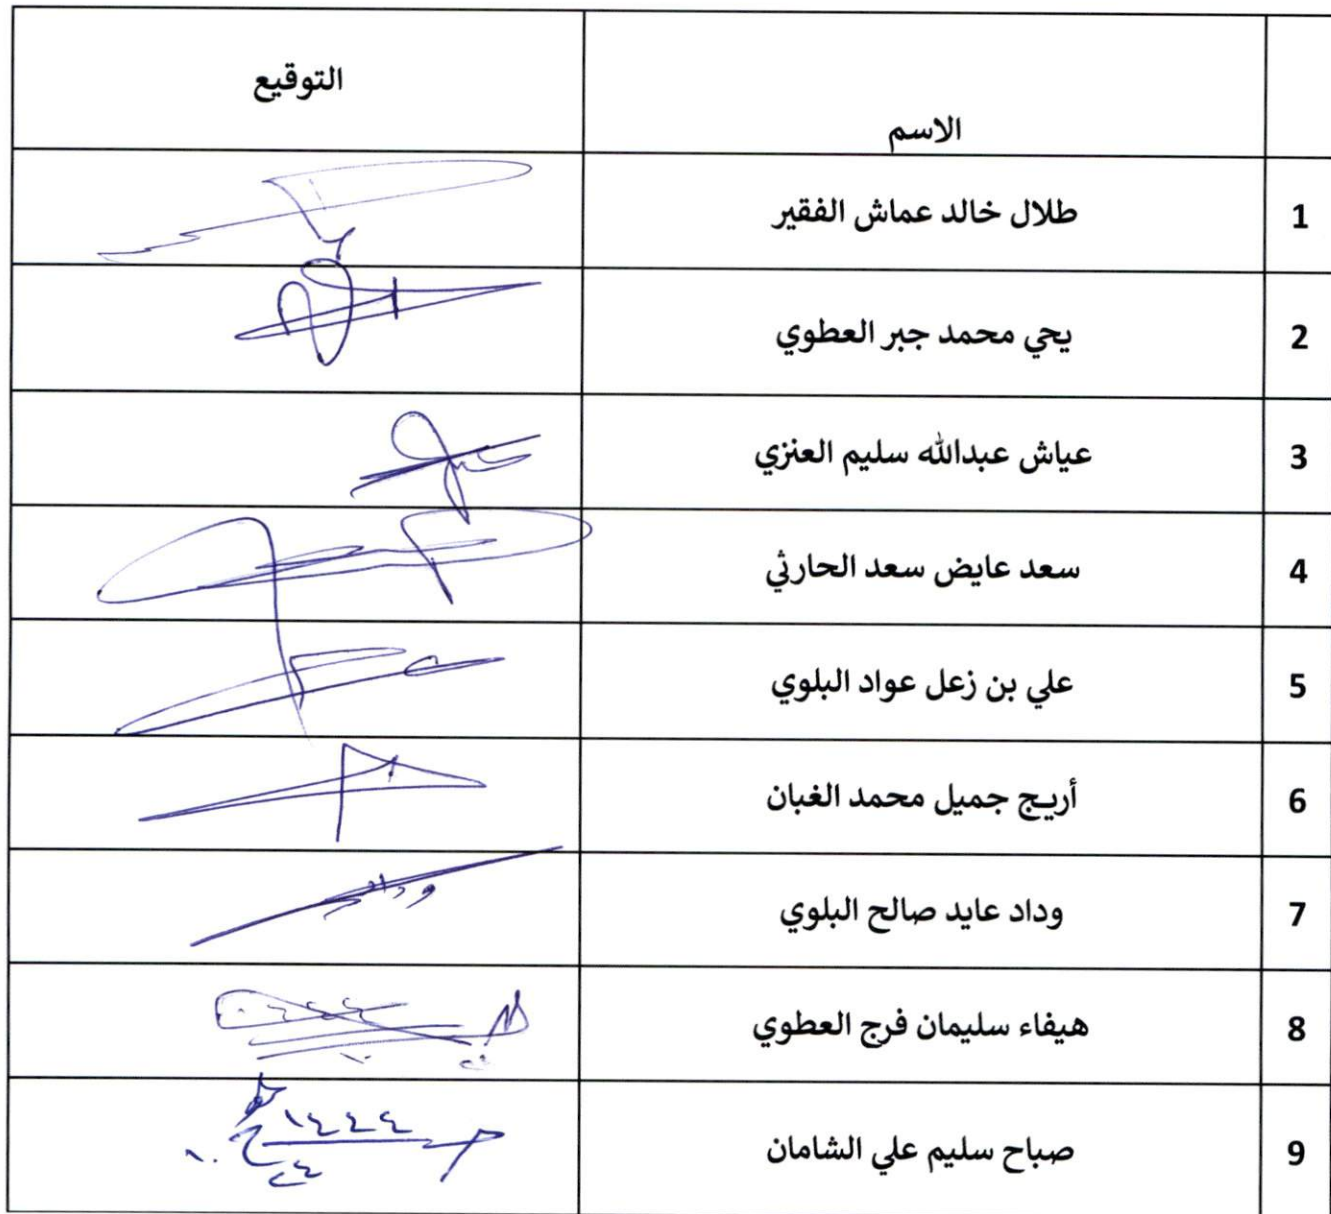 الاسم التوقيع
1 طلال خالد عماش الفقير
2 يحي محمد جبر العطوي
3 عياش عبدالله سليم العنزي
4 سعد عايض سعد الحارثي
5 علي بن زعل عواد البلوي
6 أريج جميل محمد الغبان
7 وداد عايد صالح البلوي وداد
8 هيفاء سليمان فرج العطوي
9 صباح سليم علي الشامان ١٤٤٤